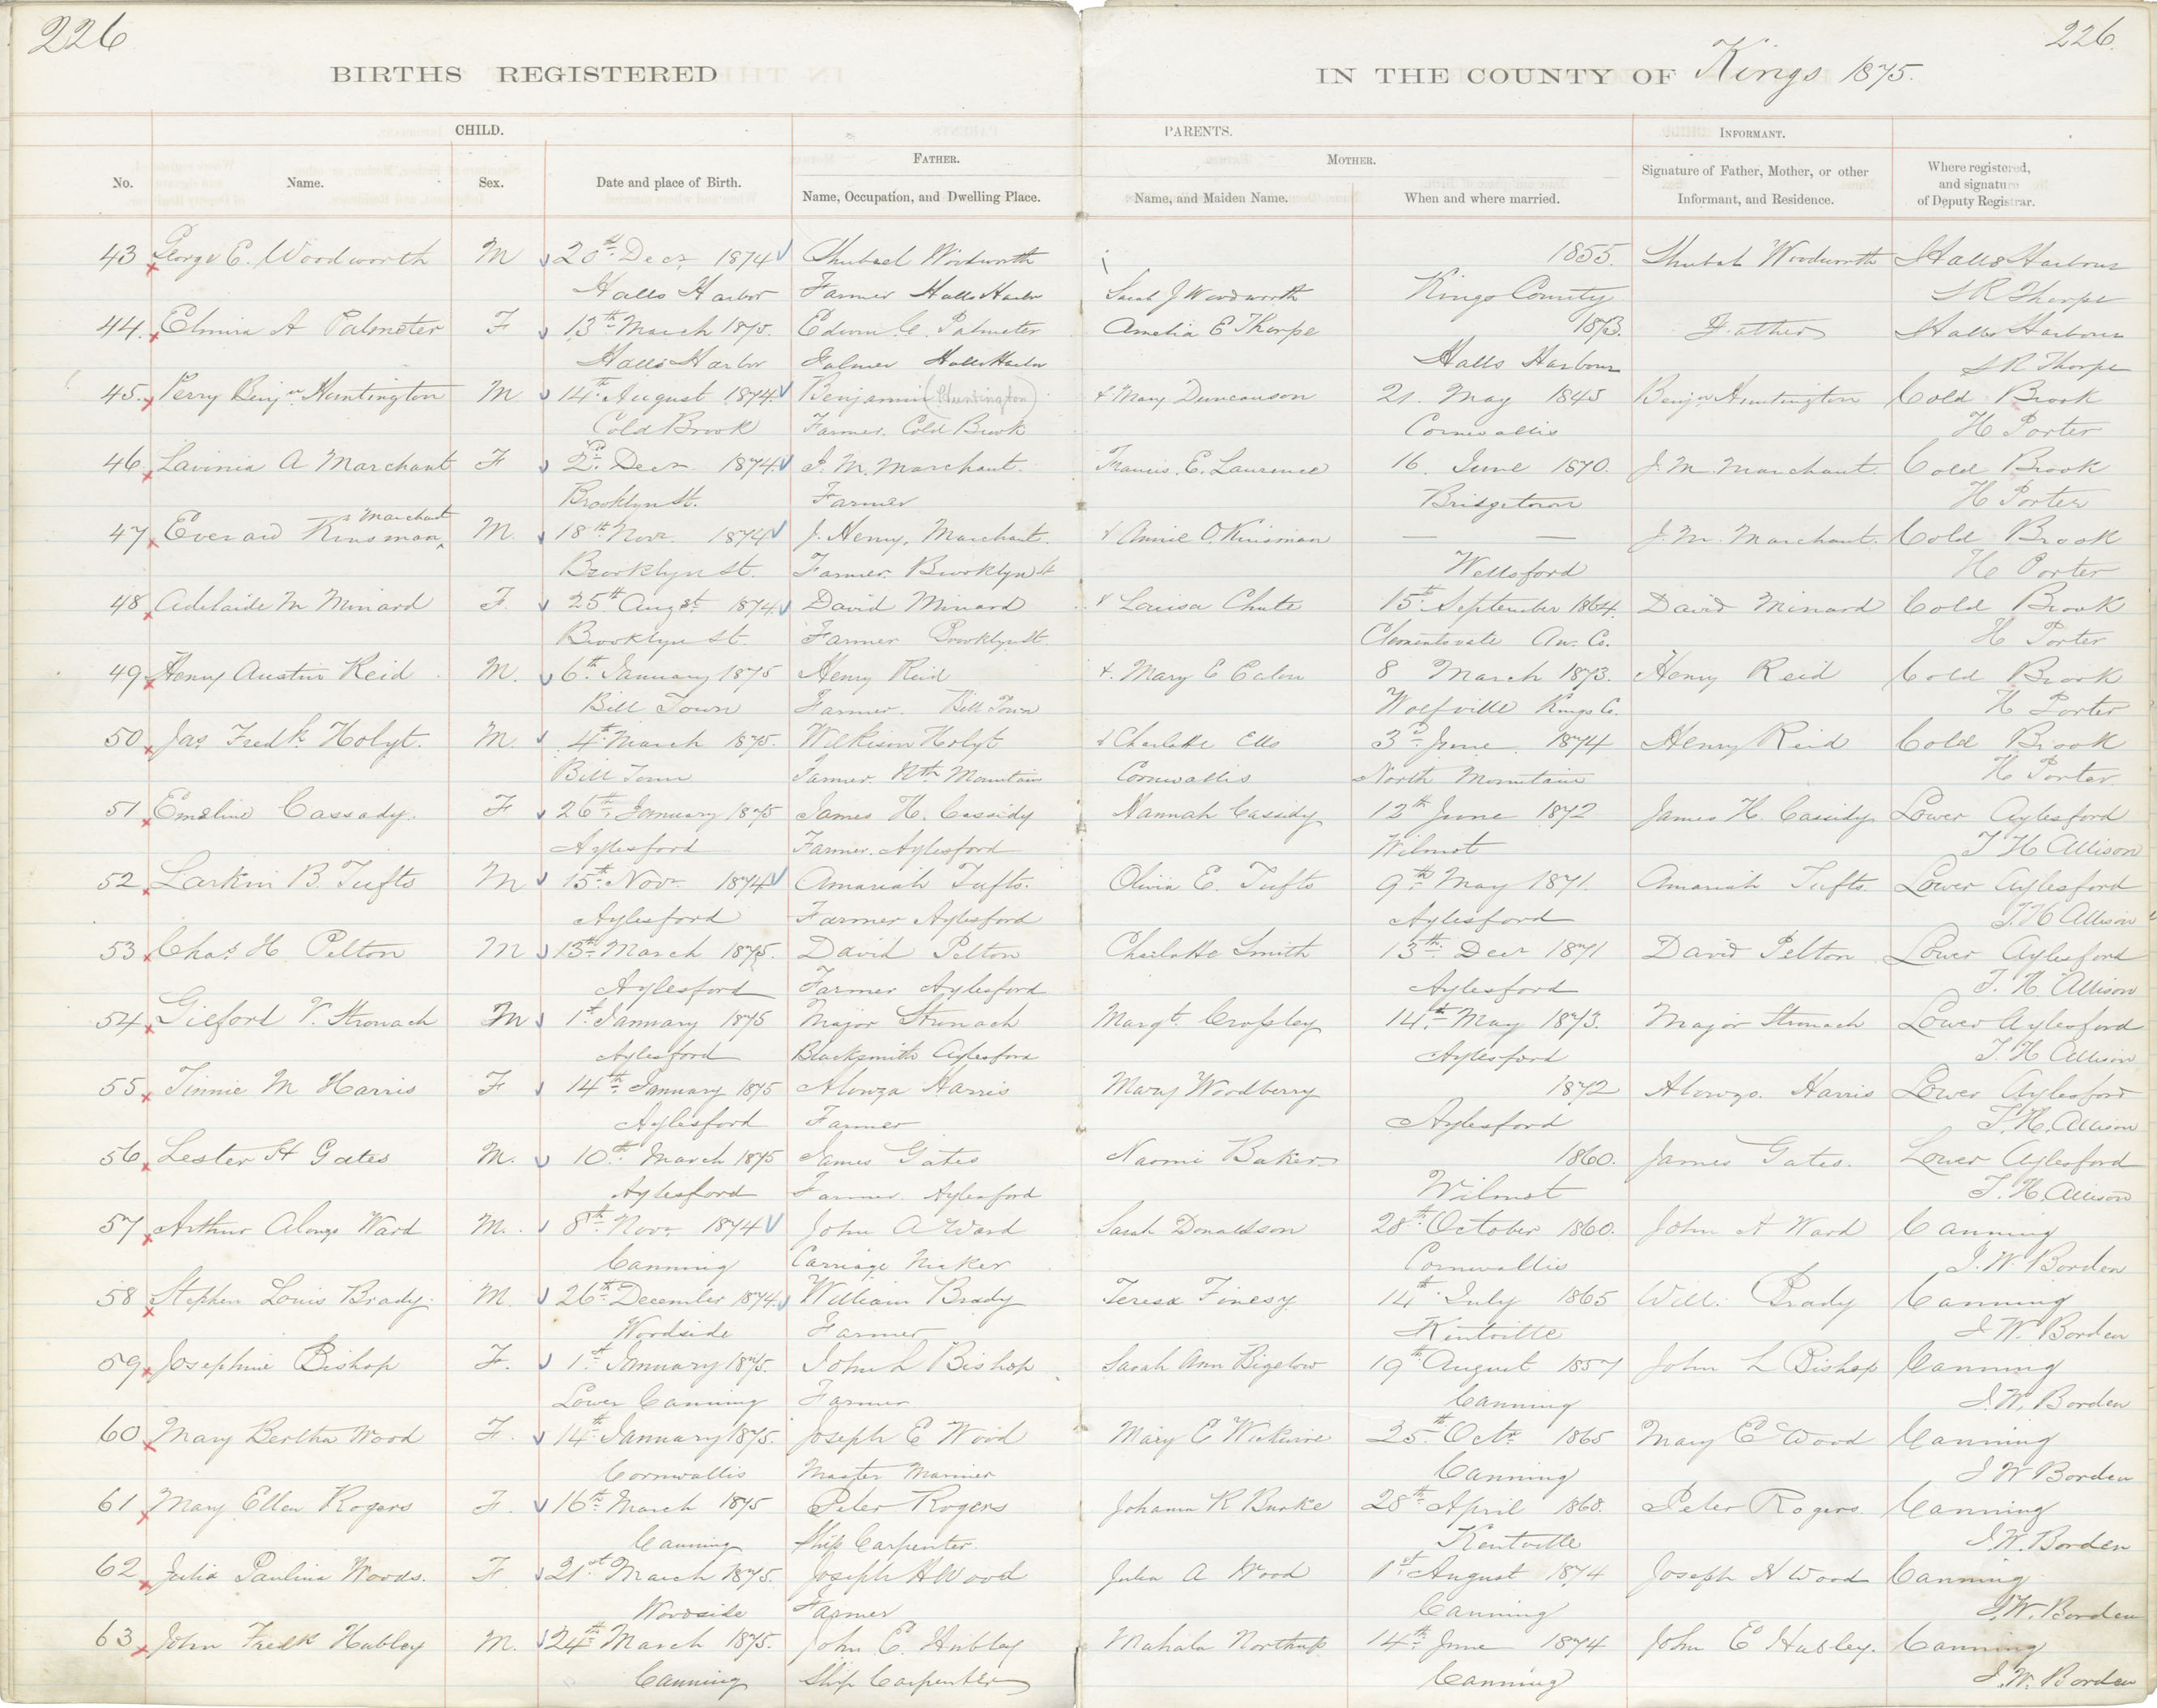 226
226.
BIRTHS REGISTERED
IN THE COUNTY OF Kings 1875.
CHILD.
PARENTS.
INFORMANT.
FATHER.
MOTHER.
No. Name. Sex. Date and place of Birth. Name, Occupation, and Dwelling Place. Name, and Maiden Name. When and where married. Signature of Father, Mother, or other Informant, and Residence. Where registered, and signature of Deputy Registrar.
43 George E. Woodworth M 20th Decr 1874 Shubael Woodworth 1855. Shubal Woodworth Halls Harbour
Halls Harbor Farmer Halls Harbor Sarah J Woodworth Kings County S R Thorpe
44. Elmira A Palmeter F 13th March 1875. Edwin C. Palmeter Amelia E Thorpe 1873. Father Halls Harbour
Halls Harbor Falmer Halls Harbor Halls Harbour S R Thorpe
45. Perry Benjn Huntington M 14th August 1874. Benjamin (Huntington) Mary Duncanson 21. May 1845 Benjn Huntington Cold Brook
Cold Brook Farmer. Cold Brook Cornwallis H Porter
46. Lavinia A Marchant F 2d Decr 1874. J. M. Marchant. Francis. E. Laurence 16. June 1870. J. M. Marchant. Cold Brook
Brooklyn St. Farmer Bridgetown H Porter
47 Everard Kinsman Marchant M. 18th Novr. 1874 J. Henry. Marchant. Annie O. Kinsman — — J. M. Marchant. Cold Brook
Brooklyn St. Farmer. Brooklyn St Wellsford H Porter
48 Adelaide M Minard F. 25th Augst 1874. David Minard Louisa Chute 15th September 1864. David Minard Cold Brook
Brooklyn St. Farmer Brooklyn St. Clementsvale An. Co. H Porter
49 Henry Austin Reid M. 6th January 1875 Henry Reid Mary E Eaton 8 March 1873. Henry Reid Cold Brook
Bill Town Farmer. Bill Town Wolfville Kings Co. H Porter
50 Jas Fredk Holyt. M. 4th March 1875. Wilkison Holyt Charlotte Ells 3d June 1874 Henry Reid Cold Brook
Bill Town Farmer Nth Mountain Cornwallis North Mountain H Porter.
51 Emeline Cassady. F 26th January 1875 James H. Cassidy Hannah Cassidy 12th June 1872 James H. Cassidy Lower Aylesford
Aylesford Farmer. Aylesford Wilmot T H Allison
52 Larkin B. Tufts M 15th Novr 1874 Amariah Tufts. Olivia E. Tufts 9th May 1871. Amariah Tufts. Lower Aylesford
Aylesford Farmer Aylesford Aylesford T. H Allison
53 Chas. H Pelton M 13th March 1875. David Pelton Charlotte Smith 13th Decr 1871 David Pelton Lower Aylesford
Aylesford Farmer Aylesford Aylesford T. H. Allison
54 Gilford V. Stronach M 1st January 1875 Major Stronach Margt. Crossley 14th May 1873. Major Stronach Lower Aylesford
Aylesford Blacksmith Aylesford Aylesford T. H Allison
55 Tinnie M Harris F 14th January 1875 Alonza Harris Mary Woodberry 1872 Alonzo. Harris Lower Aylesford
Aylesford Farmer Aylesford T. H. Allison
56 Lester H Gates M. 10th March 1875 James Gates Naomi Baker 1860. James Gates. Lower Aylesford
Aylesford Farmer. Aylesford Wilmot T. H. Allison
57 Arthur Alonzo Ward M. 8th Novr 1874 John A Ward Sarah Donaldson 28th October 1860. John A Ward Canning
Canning Carriage Maker Cornwallis J. W. Borden
58 Stephen Louis Brady. M. 26th December 1874. William Brady Teresa Finesy 14th July 1865 Will: Brady Canning
Woodside Farmer Kintville J. W. Borden
59 Josephine Bishop F. 1st January 1875. John L Bishop Sarah Ann Bigelow 19th August 1857 John L Bishop Canning
Lower Canning Farmer Canning J. W. Borden
60 Mary Bertha Wood F. 14th January 1875. Joseph E Wood Mary E Wickwire 25th Octr 1865 Mary E Wood Canning
Cornwallis Master Mariner Canning J W Borden
61 Mary Ellen Rogers F. 16th March 1875 Peter Rogers Johanna R Burke 28th April 1868. Peter Rogers. Canning
Canning Ship Carpenter Kentville J. W. Borden
62 Julia Paulina Woods. F. 21st March 1875. Joseph H Wood Julia A Wood 1st August 1874 Joseph H Wood Canning
Woodside Farmer Canning J. W. Borden
63 John Fredk Hubley M. 24th March 1875. John E. Hubley Mahala Northup 14th June 1874 John E Hubley. Canning
Canning Ship Carpenter Canning J. W. Borden